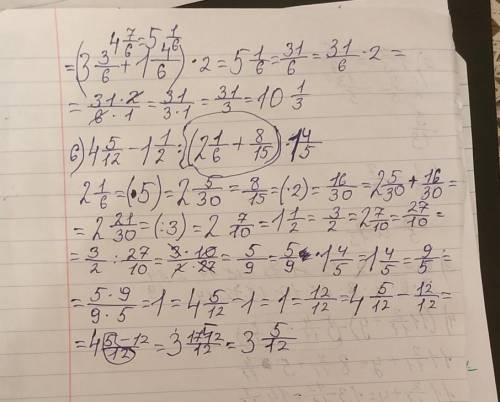 4 7/6 = 5 1/6
= (3 3/6 + 1 4/6) · 2 = 5 1/6 = 31/6 = 31/6 · 2 =
= 31 · 2/6 · 1 = 31/3 · 1 = 31/3 = 10 1/3
б) 4 5/12 - 1 1/2 : {(2 1/6 + 8/15)} · 1 4/5
2 1/6 = (·5) = 2 5/30 = 8/15 = (·2) = 16/30 = 2 5/30 + 16/30 =
= 2 21/30 = (:3) = 2 7/10 = 1 1/2 = 3/2 = 2 7/10 = 27/10 =
= 3/2 : 27/10 = 3 · 10/2 · 27 = 5/9 = 5/9 · 1 4/5 = 1 4/5 = 9/5 =
= 5 · 9/9 · 5 = 1 = 4 5/12 - 1 = 1 = 12/12 = 4 5/12 - 12/12 =
= 4 5 - 12/12 = 3 17-12/12 = 3 5/12